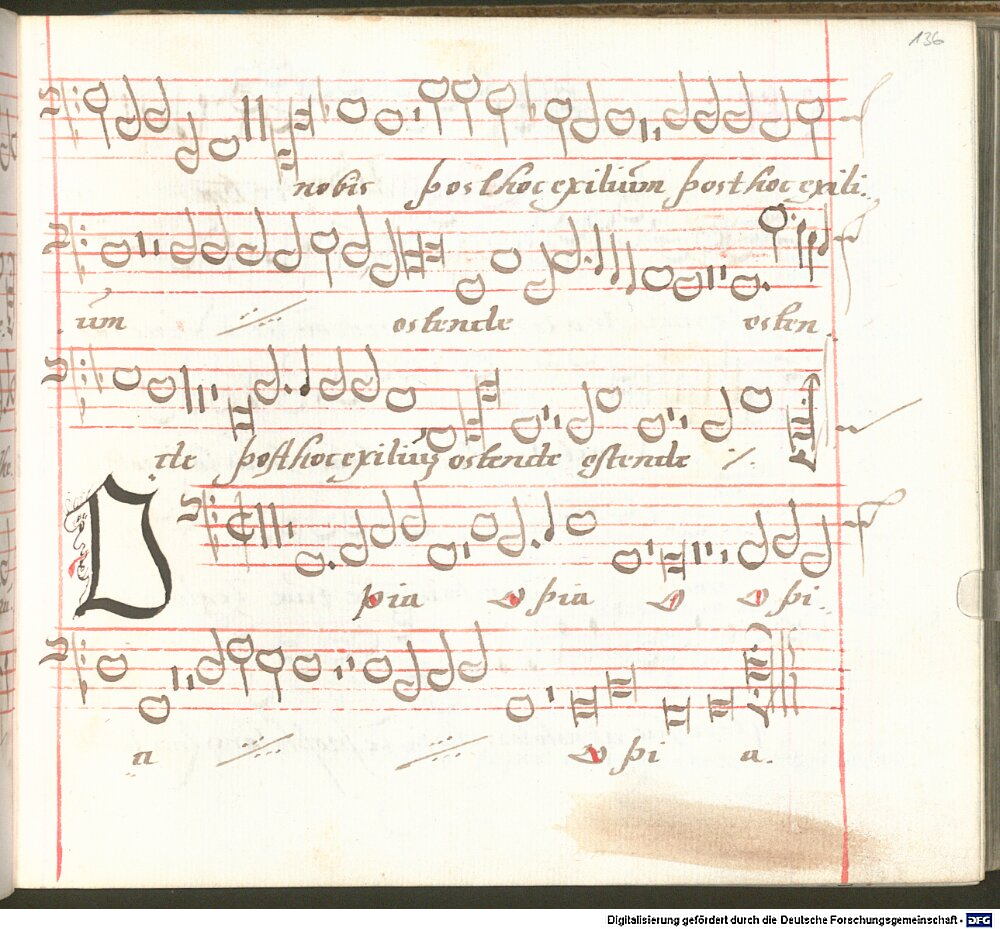 136
nobis post hoc exiliūm post hoc exili
ūm ostende osten
de post hoc exiliūȝ ostende ostende
O
pia o pia o o pi
a o pi a.
Digitalisierung gefördert durch die Deutsche Forschungsgemeinschaft - DFG